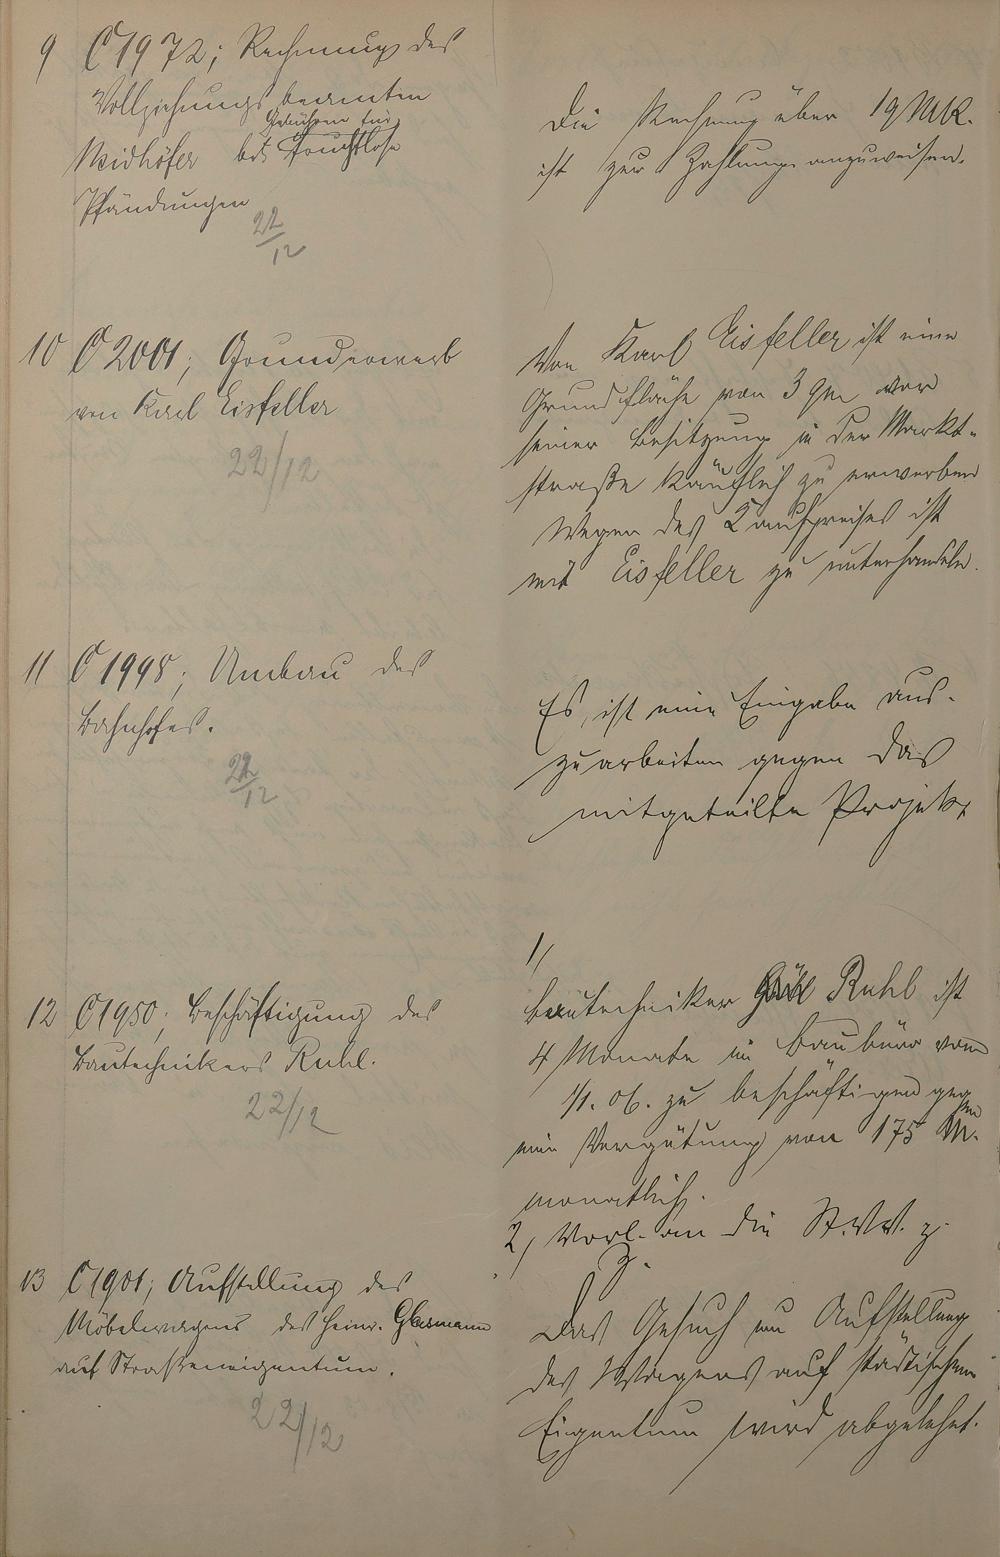 9 C 1972; Rechnung des
Vollziehungsbeamten
Gebühren für
Neidhöfer bet. fruchtlose
Pfändungen
22/12
Die Rechnung über 19 MK.
ist zur Zahlung anzuweisen.
10 C 2001; Grunderwerb
von Karl Eisfeller
22/12
Von Karl Eisfeller ist eine
Grundfläche von 3 qm vor
seiner Besitzung in der Markt-
straße käuflich zu erwerben
Wegen des Kaufpreises ist
mit Eisfeller zu unterhandeln.
11 C 1998; Umbau des
Bahnhofes.
22/12
Es ist eine Eingabe aus-
zuarbeiten gegen das
mitgeteilte Projekt
12 C 1950; Beschäftigung des
Bautechnikers Ruhl.
22/12
1/
Bautechniker Ruhl ist
4 Monate im Baubüro vom
1/1. 06. zu beschäftigen gegen
eine Vergütung von 175 M.
monatlich.
2/ Vorl. an die St.V.V. z.
J.
13 C 1901; Aufstellung des
Möbelwagens des Heinr. Glasmann
auf Straßeneigentum.
22/12
Das Gesuch um Aufstellung
des Wagens auf städtischem
Eigentum wird abgelehnt.